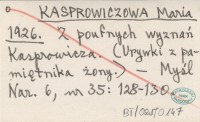 KASPROWICZOWA Maria
1926. Z poufnych wyznań
Kasprowicza. (Urywki z pa-
miętnika żony.) - Myśl
Nar. 6, nr 35: 128-130.
BJ/Oświ/0147